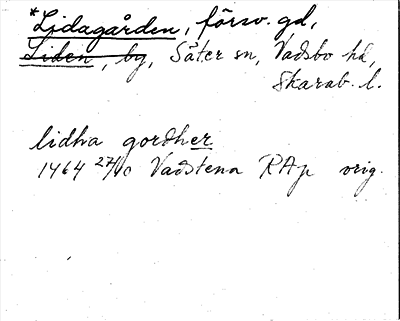 *Lidagården, försv. gd,
Liden, by, Säter sn, Vadsbo hd,
Skarab. l.
lidha gordher
1464 27/10 Vadstena RAp orig.